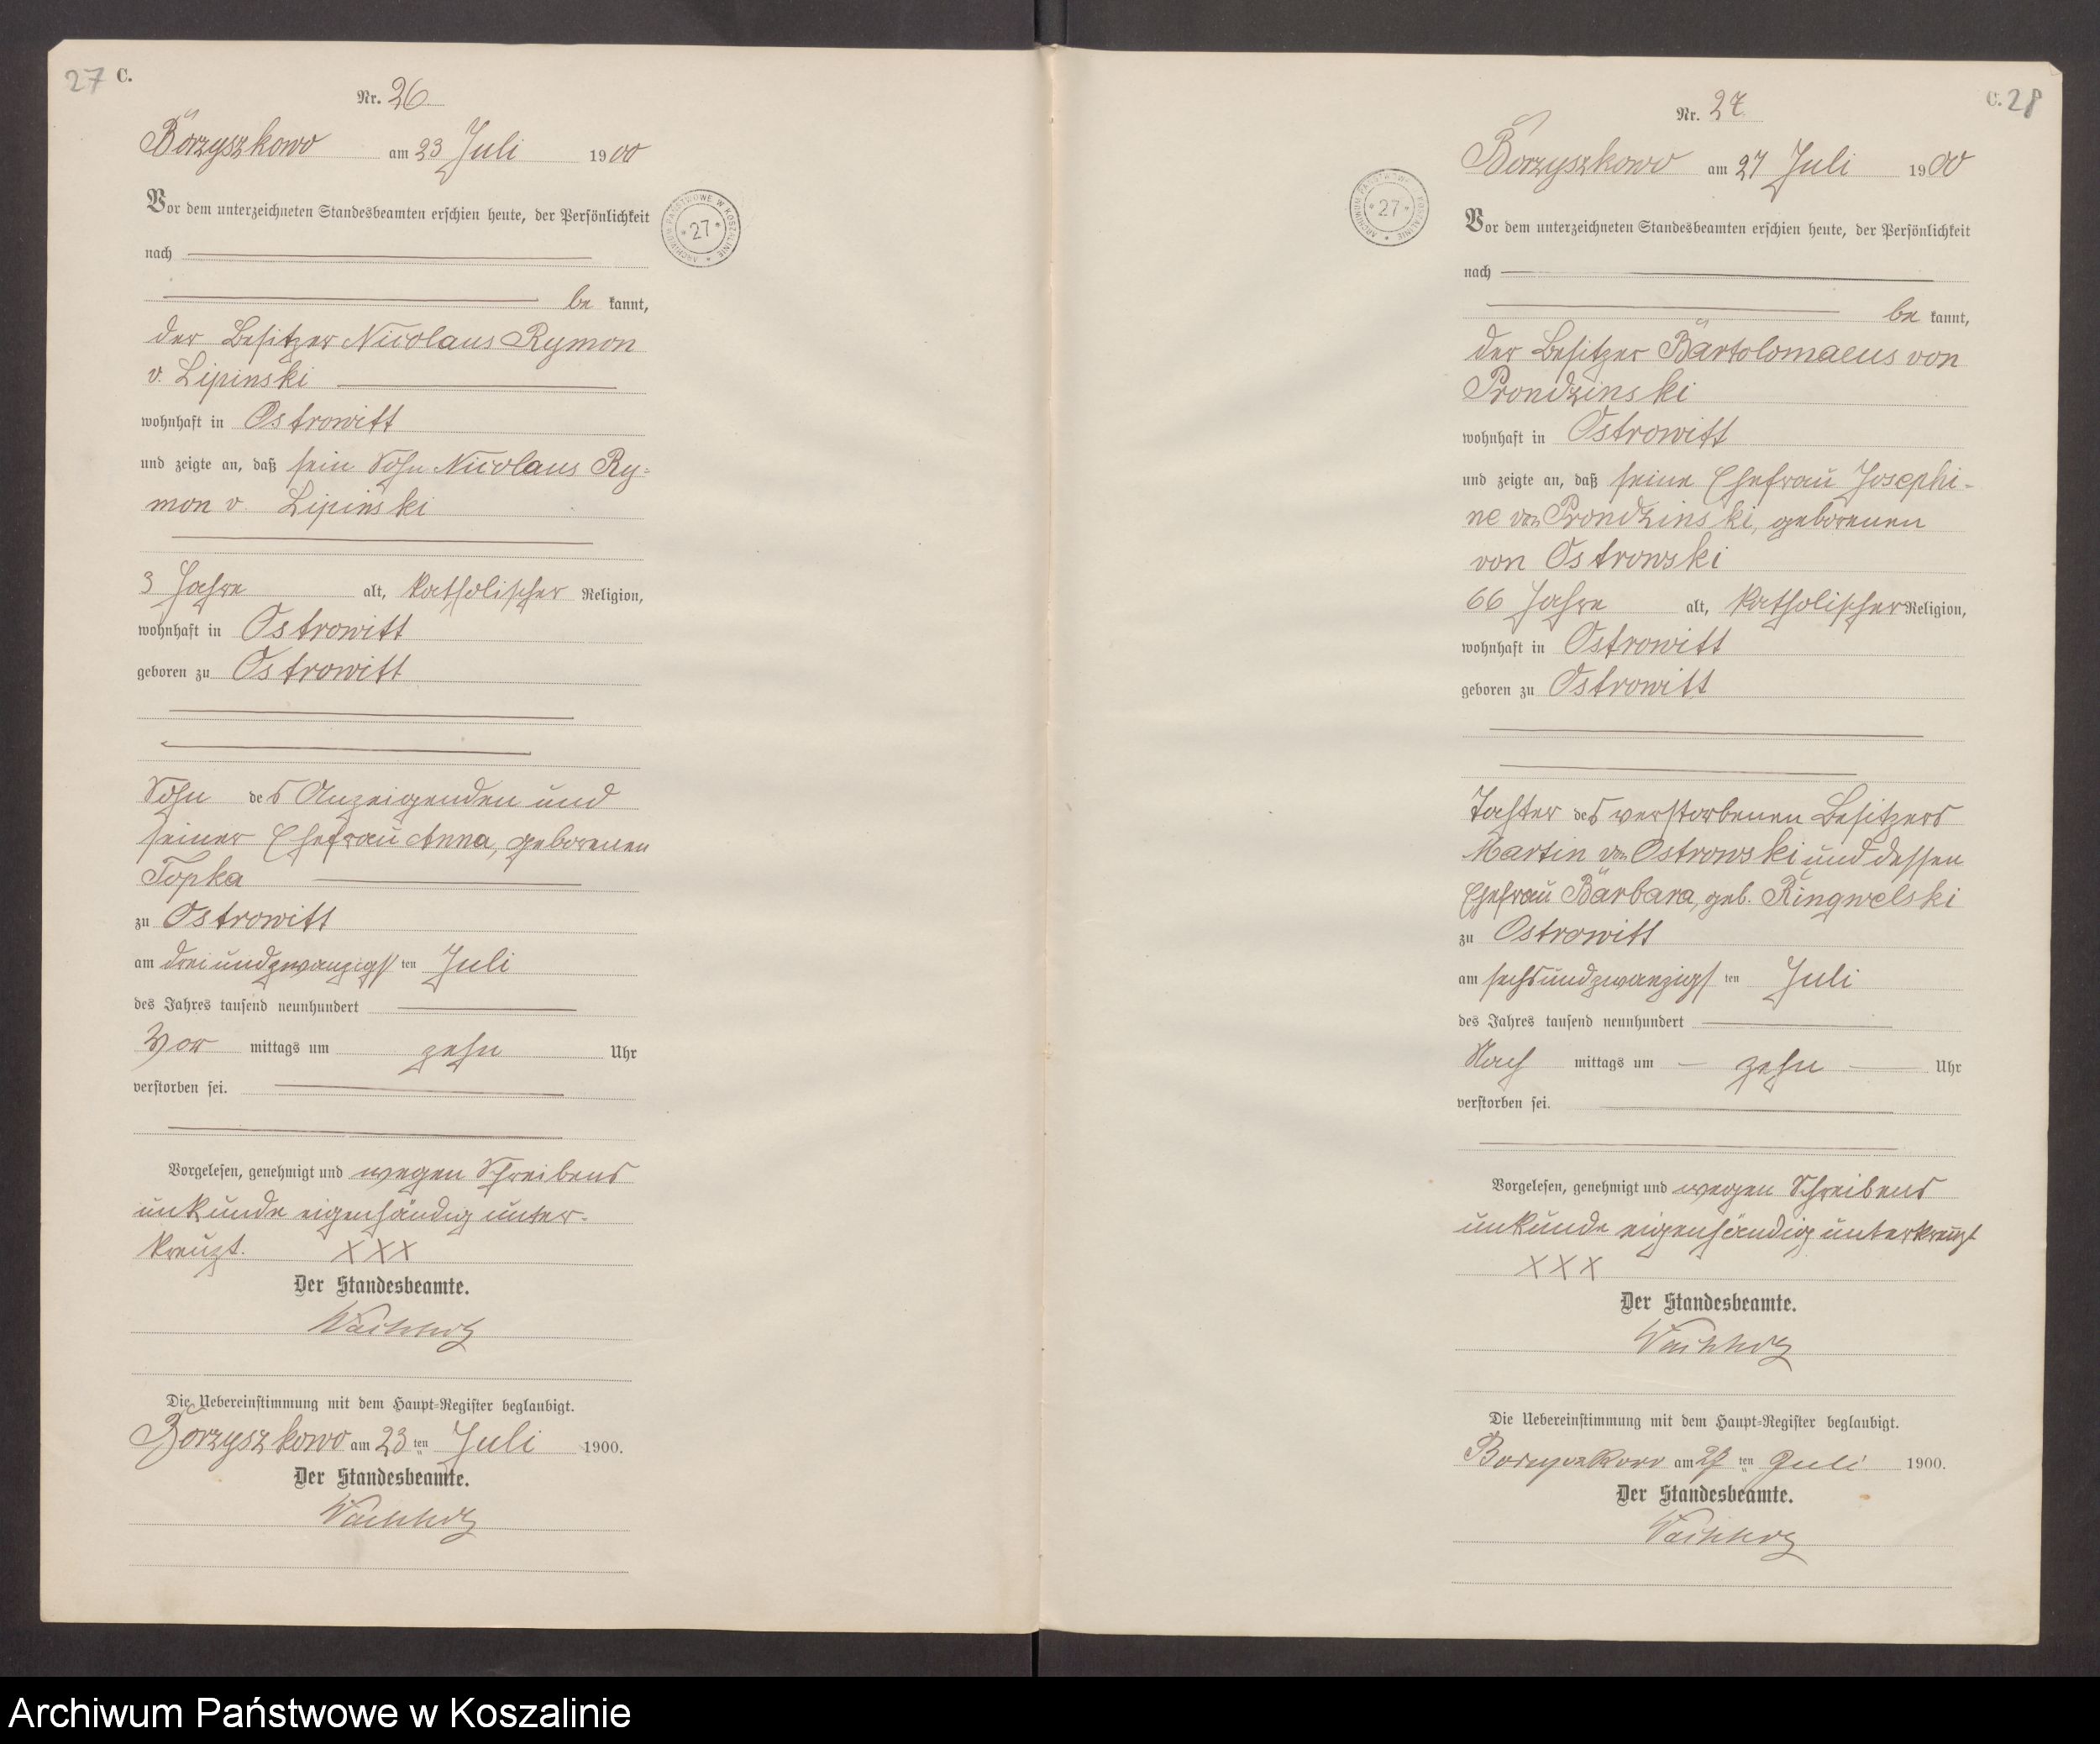 27 C.
Nr. 26
Borzyszkowo am 23 Juli 1900
Vor dem unterzeichneten Standesbeamten erschien heute, der Persönlichkeit
nach
be kannt,
der Besitzer Nicolaus Rymon
v. Lipinski
wohnhaft in Ostrowitt
und zeigte an, daß sein Sohn Nicolaus Ry-
mon v. Lipinski
3 Jahre alt, katholischer Religion,
wohnhaft in Ostrowitt
geboren zu Ostrowitt
Sohn des Anzeigenden und
seiner Ehefrau Anna, geborenen
Topka
zu Ostrowitt
am dreiundzwanzigsten Juli
des Jahres tausend neunhundert
Vor mittags um zehn Uhr
verstorben sei.
Vorgelesen, genehmigt und wegen Schreibens
unkunde eigenhändig unter-
kreuzt. XXX
Der Standesbeamte.
Die Uebereinstimmung mit dem Haupt-Register beglaubigt.
Borzyszkowo am 23 ten Juli 1900.
Der Standesbeamte.
ARCHIWUM PAŃSTWOWE W KOSZALINIE
* 27 *
C. 28
Nr. 27
Borzyszkowo am 27 Juli 1900
Vor dem unterzeichneten Standesbeamten erschien heute, der Persönlichkeit
nach
be kannt,
der Besitzer Bartolomaeus von
Prondzinski
wohnhaft in Ostrowitt
und zeigte an, daß seine Ehefrau Josephi-
ne von Prondzinski, geborenen
von Ostrowski
66 Jahre alt, katholischer Religion,
wohnhaft in Ostrowitt
geboren zu Ostrowitt
Tochter des verstorbenen Besitzers
Martin von Ostrowski und dessen
Ehefrau Barbara, geb. Ringwelski
zu Ostrowitt
am sechsundzwanzigsten Juli
des Jahres tausend neunhundert
Nach mittags um zehn Uhr
verstorben sei.
Vorgelesen, genehmigt und wegen Schreibens
unkunde eigenhändig unterkreuzt
XXX
Der Standesbeamte.
Die Uebereinstimmung mit dem Haupt-Register beglaubigt.
Borzyszkowo am 27 ten Juli 1900.
Der Standesbeamte.
ARCHIWUM PAŃSTWOWE W KOSZALINIE
* 27 *
Archiwum Państwowe w Koszalinie